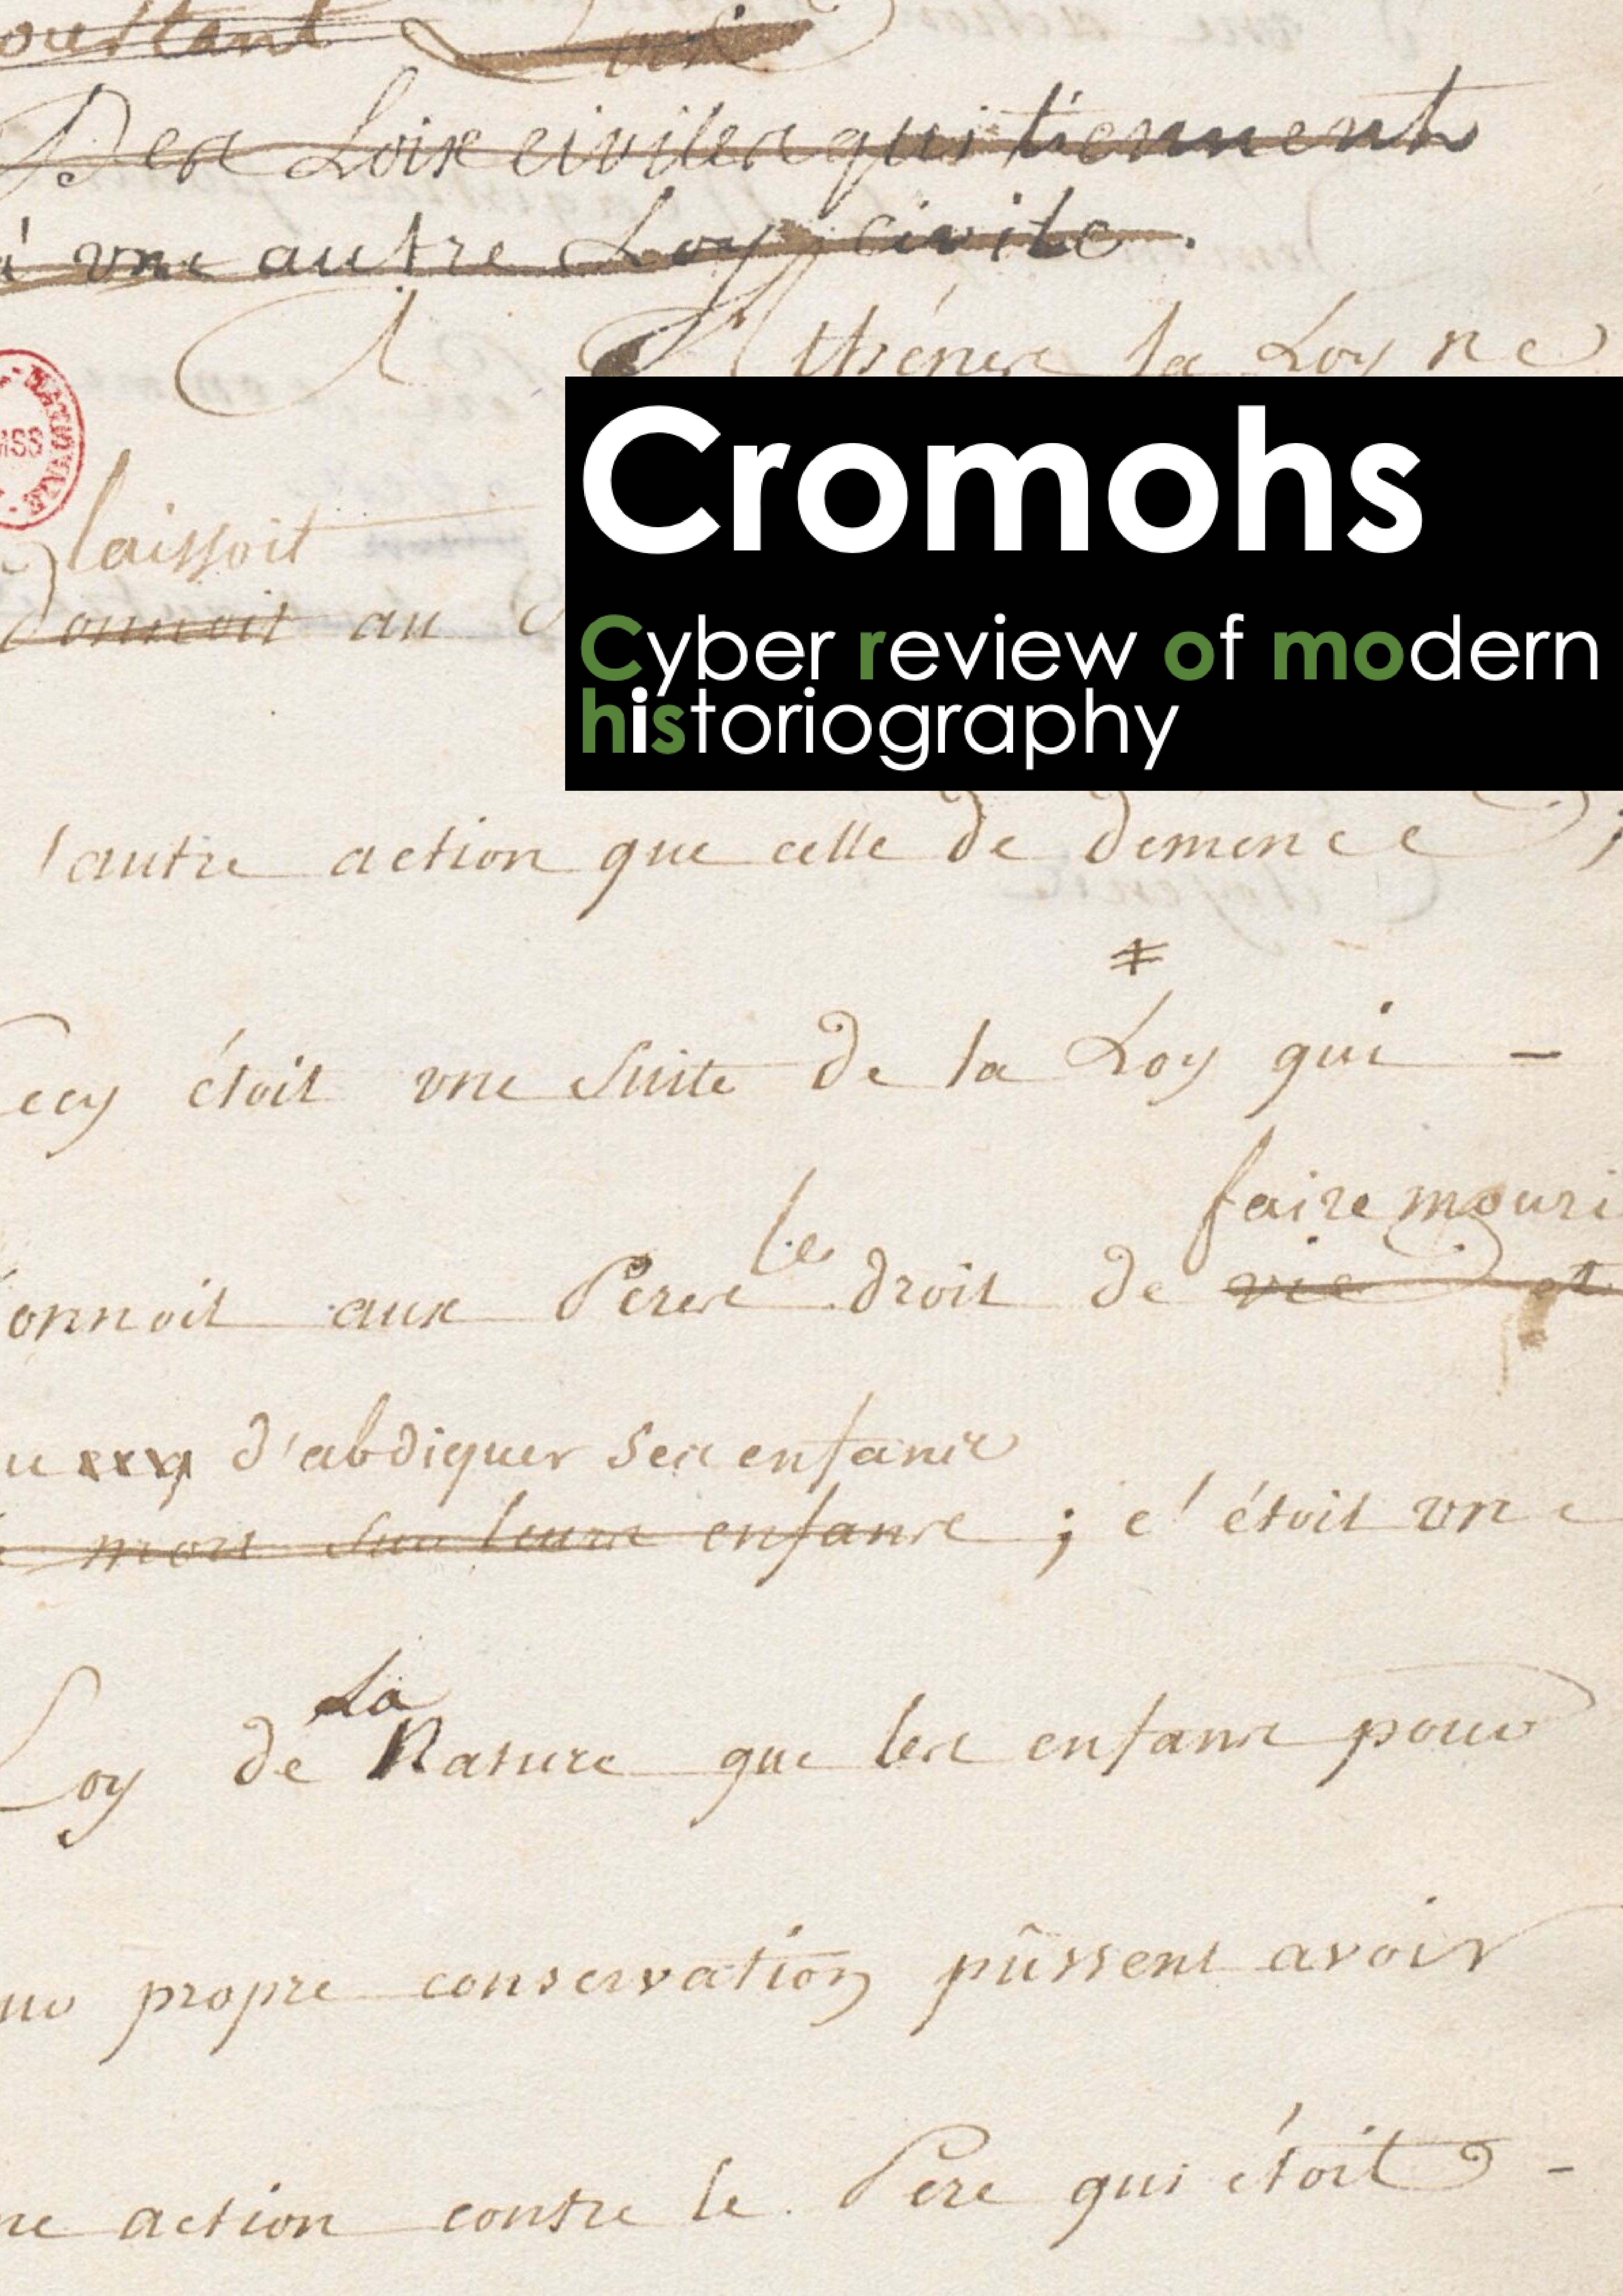 oustant Loix
Des Loix civiles qui tiennent
à vne autre Loy civile.
A Athénes la Loy ne
NATIONALE
MSS
laissoit
donnoit au
Cromohs
Cyber review of modern
historiography
l'autre action que celle de demence ;
ǂ
Cecy étoit vne suite de la Loy qui -
faire mouri
le
onnoit aux Peres droit de vie et
u d'abdiquer ses enfans
mort sur leurs enfans ; c'étoit vne
La
Loy de Nature que les enfans pour
propre conservation pûssent avoir
ne action contre le Pere qui étoit -